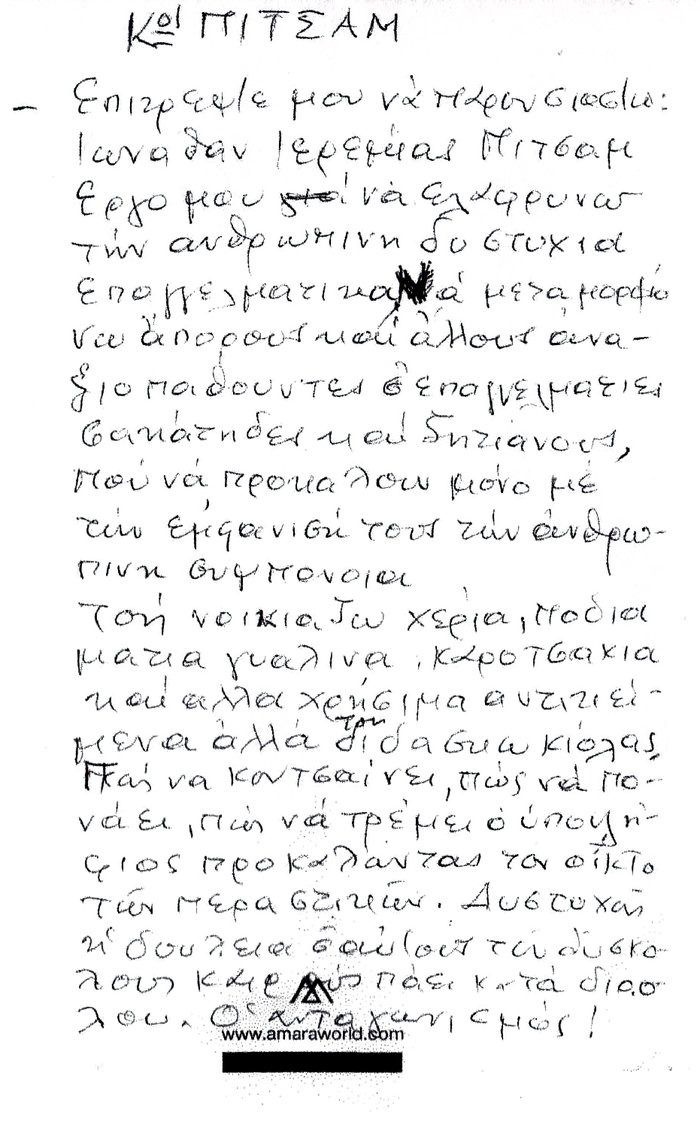 Κοι ΠΙΤΣΑΜ
– Επιτρεψτε μου νά παρουσιαστω:
Ιωναθαν Ιερεμιας Πιτσαμ
Εργο μου γιά νά ελαφρυνω
τήν ανθρωπινη δυστυχια
Επαγγελματικα Νά μεταμορφώ
νω άπορους καί άλλους άνα-
ξιοπαθουντες σ επαγγελματιες
σακάτηδες καί ζητιάνους,
πού νά προκαλουν μόνο μέ
τήν εμφανιση τους τήν άνθρω-
πινη συμπονοια
Τού νοικιαζω χέρια, ποδια
ματια γυαλινα, καροτσακια
καί αλλα χρήσιμα αντικεί-
μενα άλλά τον διδασκω κιόλας
Πώς να κουτσαίνει, πώς νά πο-
νάει, πώς νά τρέμει ό υποψή-
φιος προκαλωντας τον οίκτο
τών περαστικών. Δυστυχώς
ή δουλεια σ αυτους τους δυσκο-
λους καιρούς πάει κατά διαο-
λου. Ο ανταγωνισμός!
www.amaraworld.com